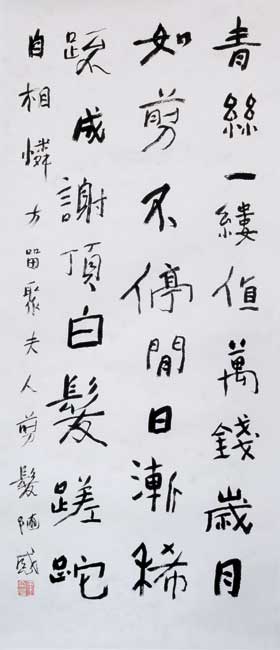 青絲一縷值萬錢歲月
如剪不停閒日漸稀
疏成謝頂白髮蹉跎
自相憐 方留聚夫人剪髮隨感